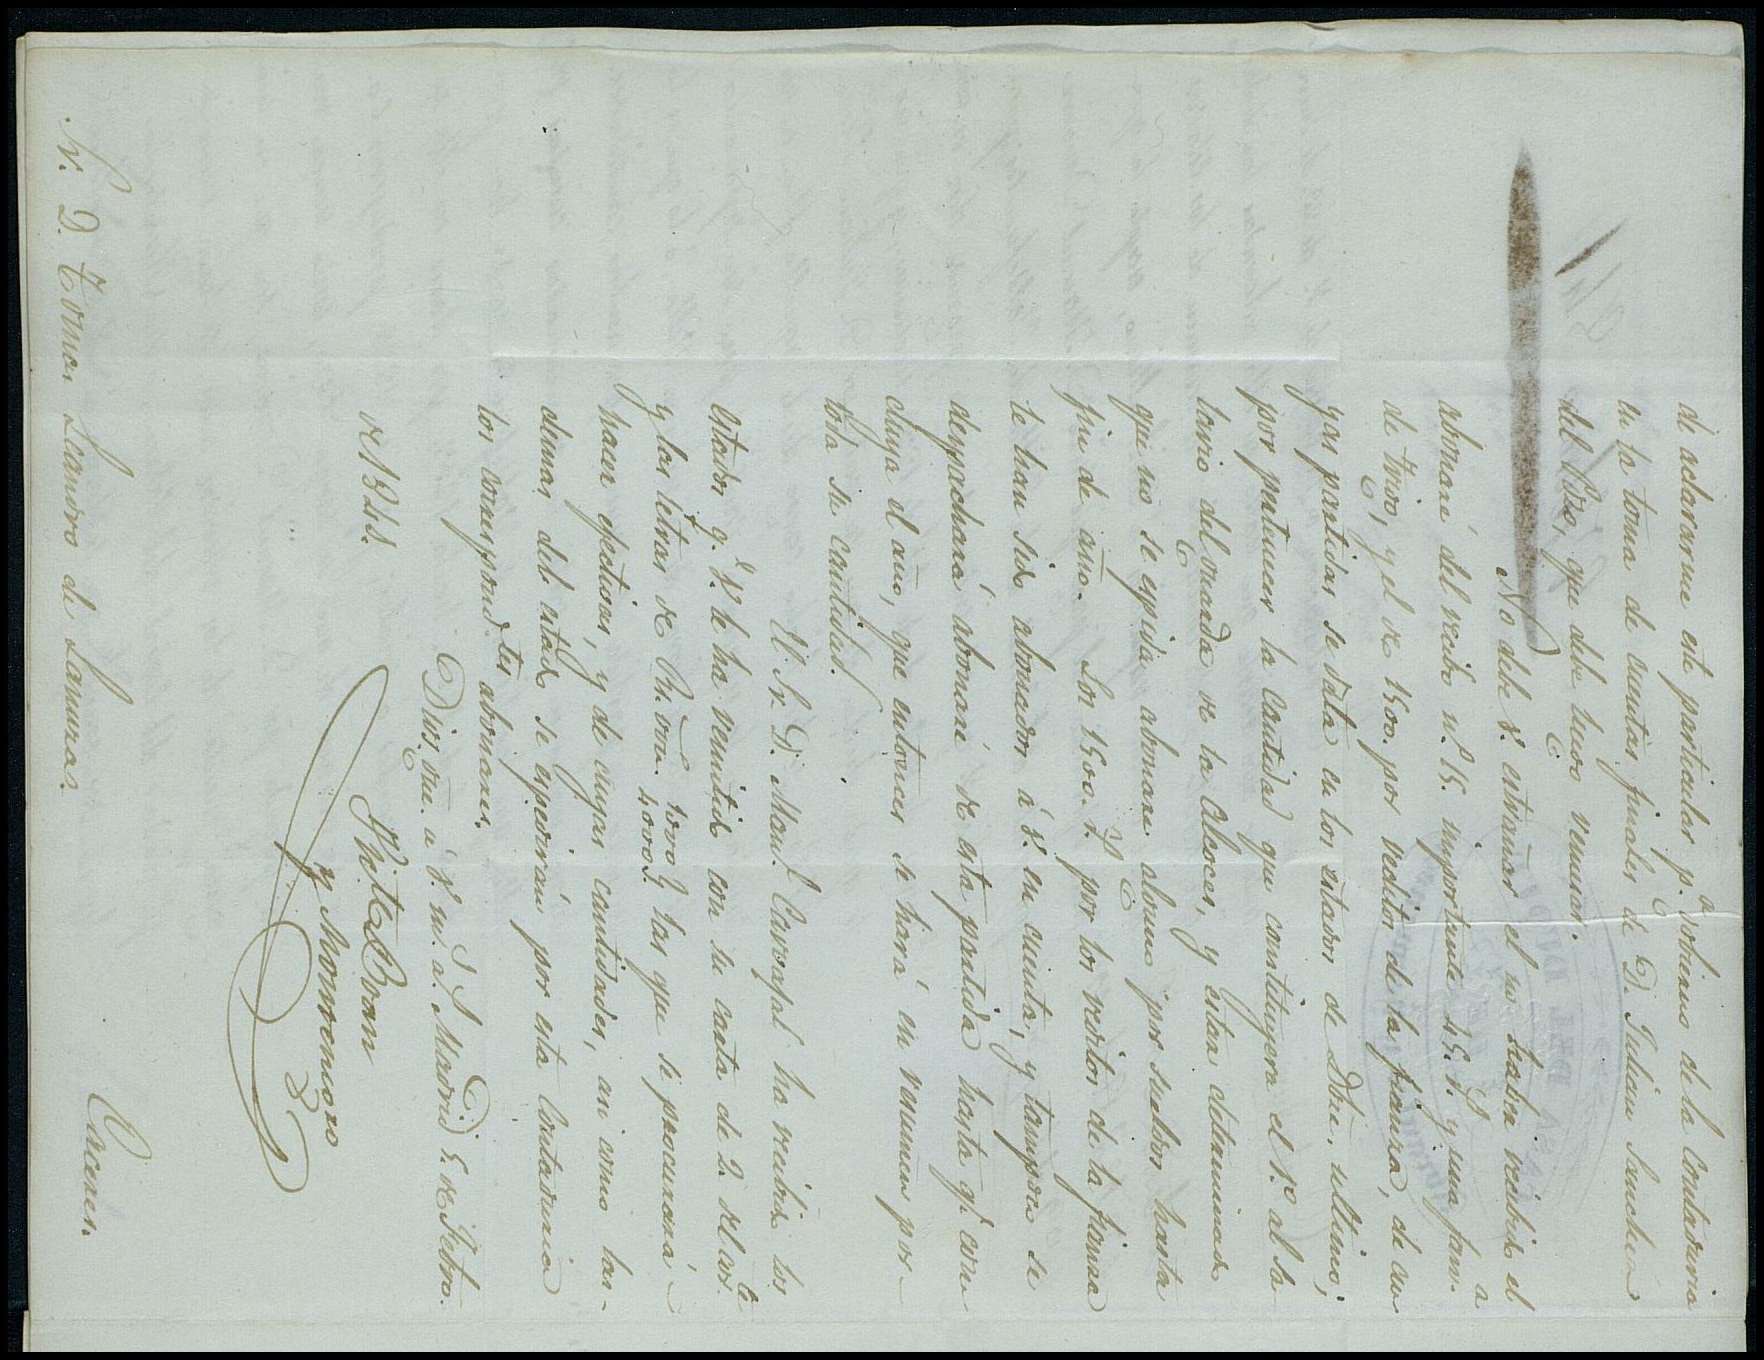 de aclararme este particular p.ª Gobierno de la Contaduria
en la toma de cuentas finales de D. Julian Sanchez
del Pozo, que debe luego venir.
No debe V. estrañar el no haber recibido el
abonaré del recibo n.º 15. importante 45. r.s y una fan.ª
de trigo, y el de 1500. por reditos de la fianza, de cu
yas partidas se data en los estados de Dbre. ultimo,
por pertenecer la cantidad que constituyera el 1.º al sa
lario del guarda de la Choces, y estar determinado
que no se espida abonare alguno por sueldos hasta
fin de año. Los 1500. r.s por los reditos de la fianza
le han sido abonados á V. en cuenta, y tampoco se
despachará abonaré de esta partida hasta q.e con
cluya el año, que entonces se hará en resumen por
toda su cantidad.
El Sr. D. Man.l Carvajal ha recibido los
estados q.e V. le ha remitido con su carta de 2. del cor.te
y las letras de Rs. von. 1000. y 4000. las que se procurará
hacer efectivas, y de cuyas cantidades, asi como las
demas del estado se espedirán por esta Contaduria
los correspond.tes abonares.
Dios gue. á V. m. a.s Madrid 5. de Febro.
de 1844.
Vidal Bvan
y Monroncoro
Sr. D. Tomas Leandro de Lamuras.
Caceres.